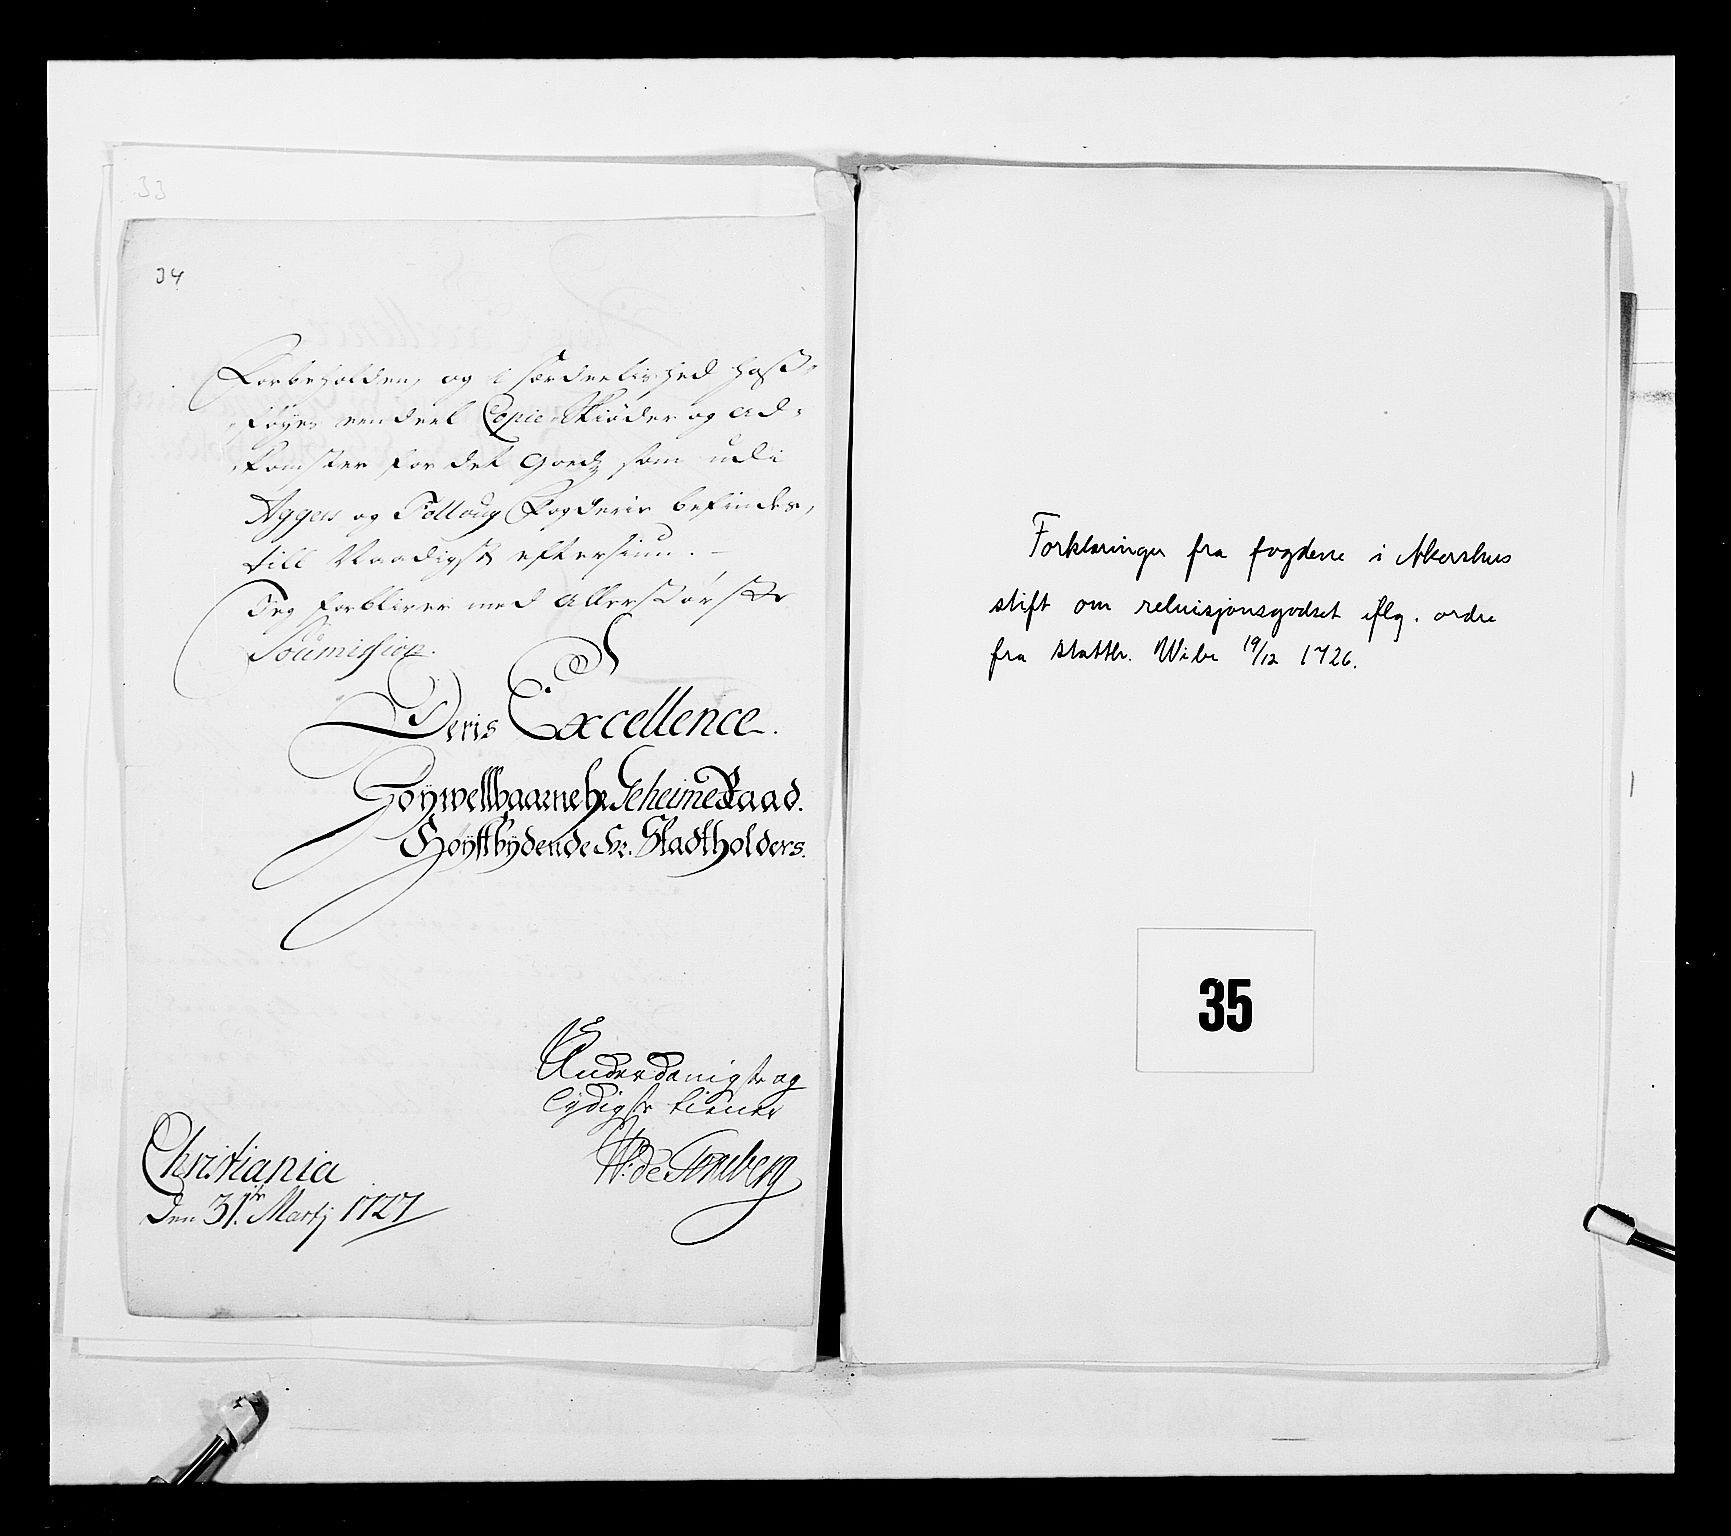 33
34
Forbeholden, og i særdeelished hoss-
føyes een deel Copie Skiøder og ad-
komster for det Goedz som udi
Aggers og Folloug Fogderie befindes,
till Naadigst eftersiun.
Jeg forblifver med Allerstørste
Soumission.
Deris Excellence.
Høywellbaarne hr. Geheime Raad.
Høystbydende Hr. Stadtholders.
Underdanigste og
lydigste tiener
W: de Tonsberg
Christiania
Den 31te Martj 1727
Forklaringer fra fogdene i Akershus
stift om reluisjonsgodset iflg. ordre
fra stattb. Wibe 19/12 1726.
35